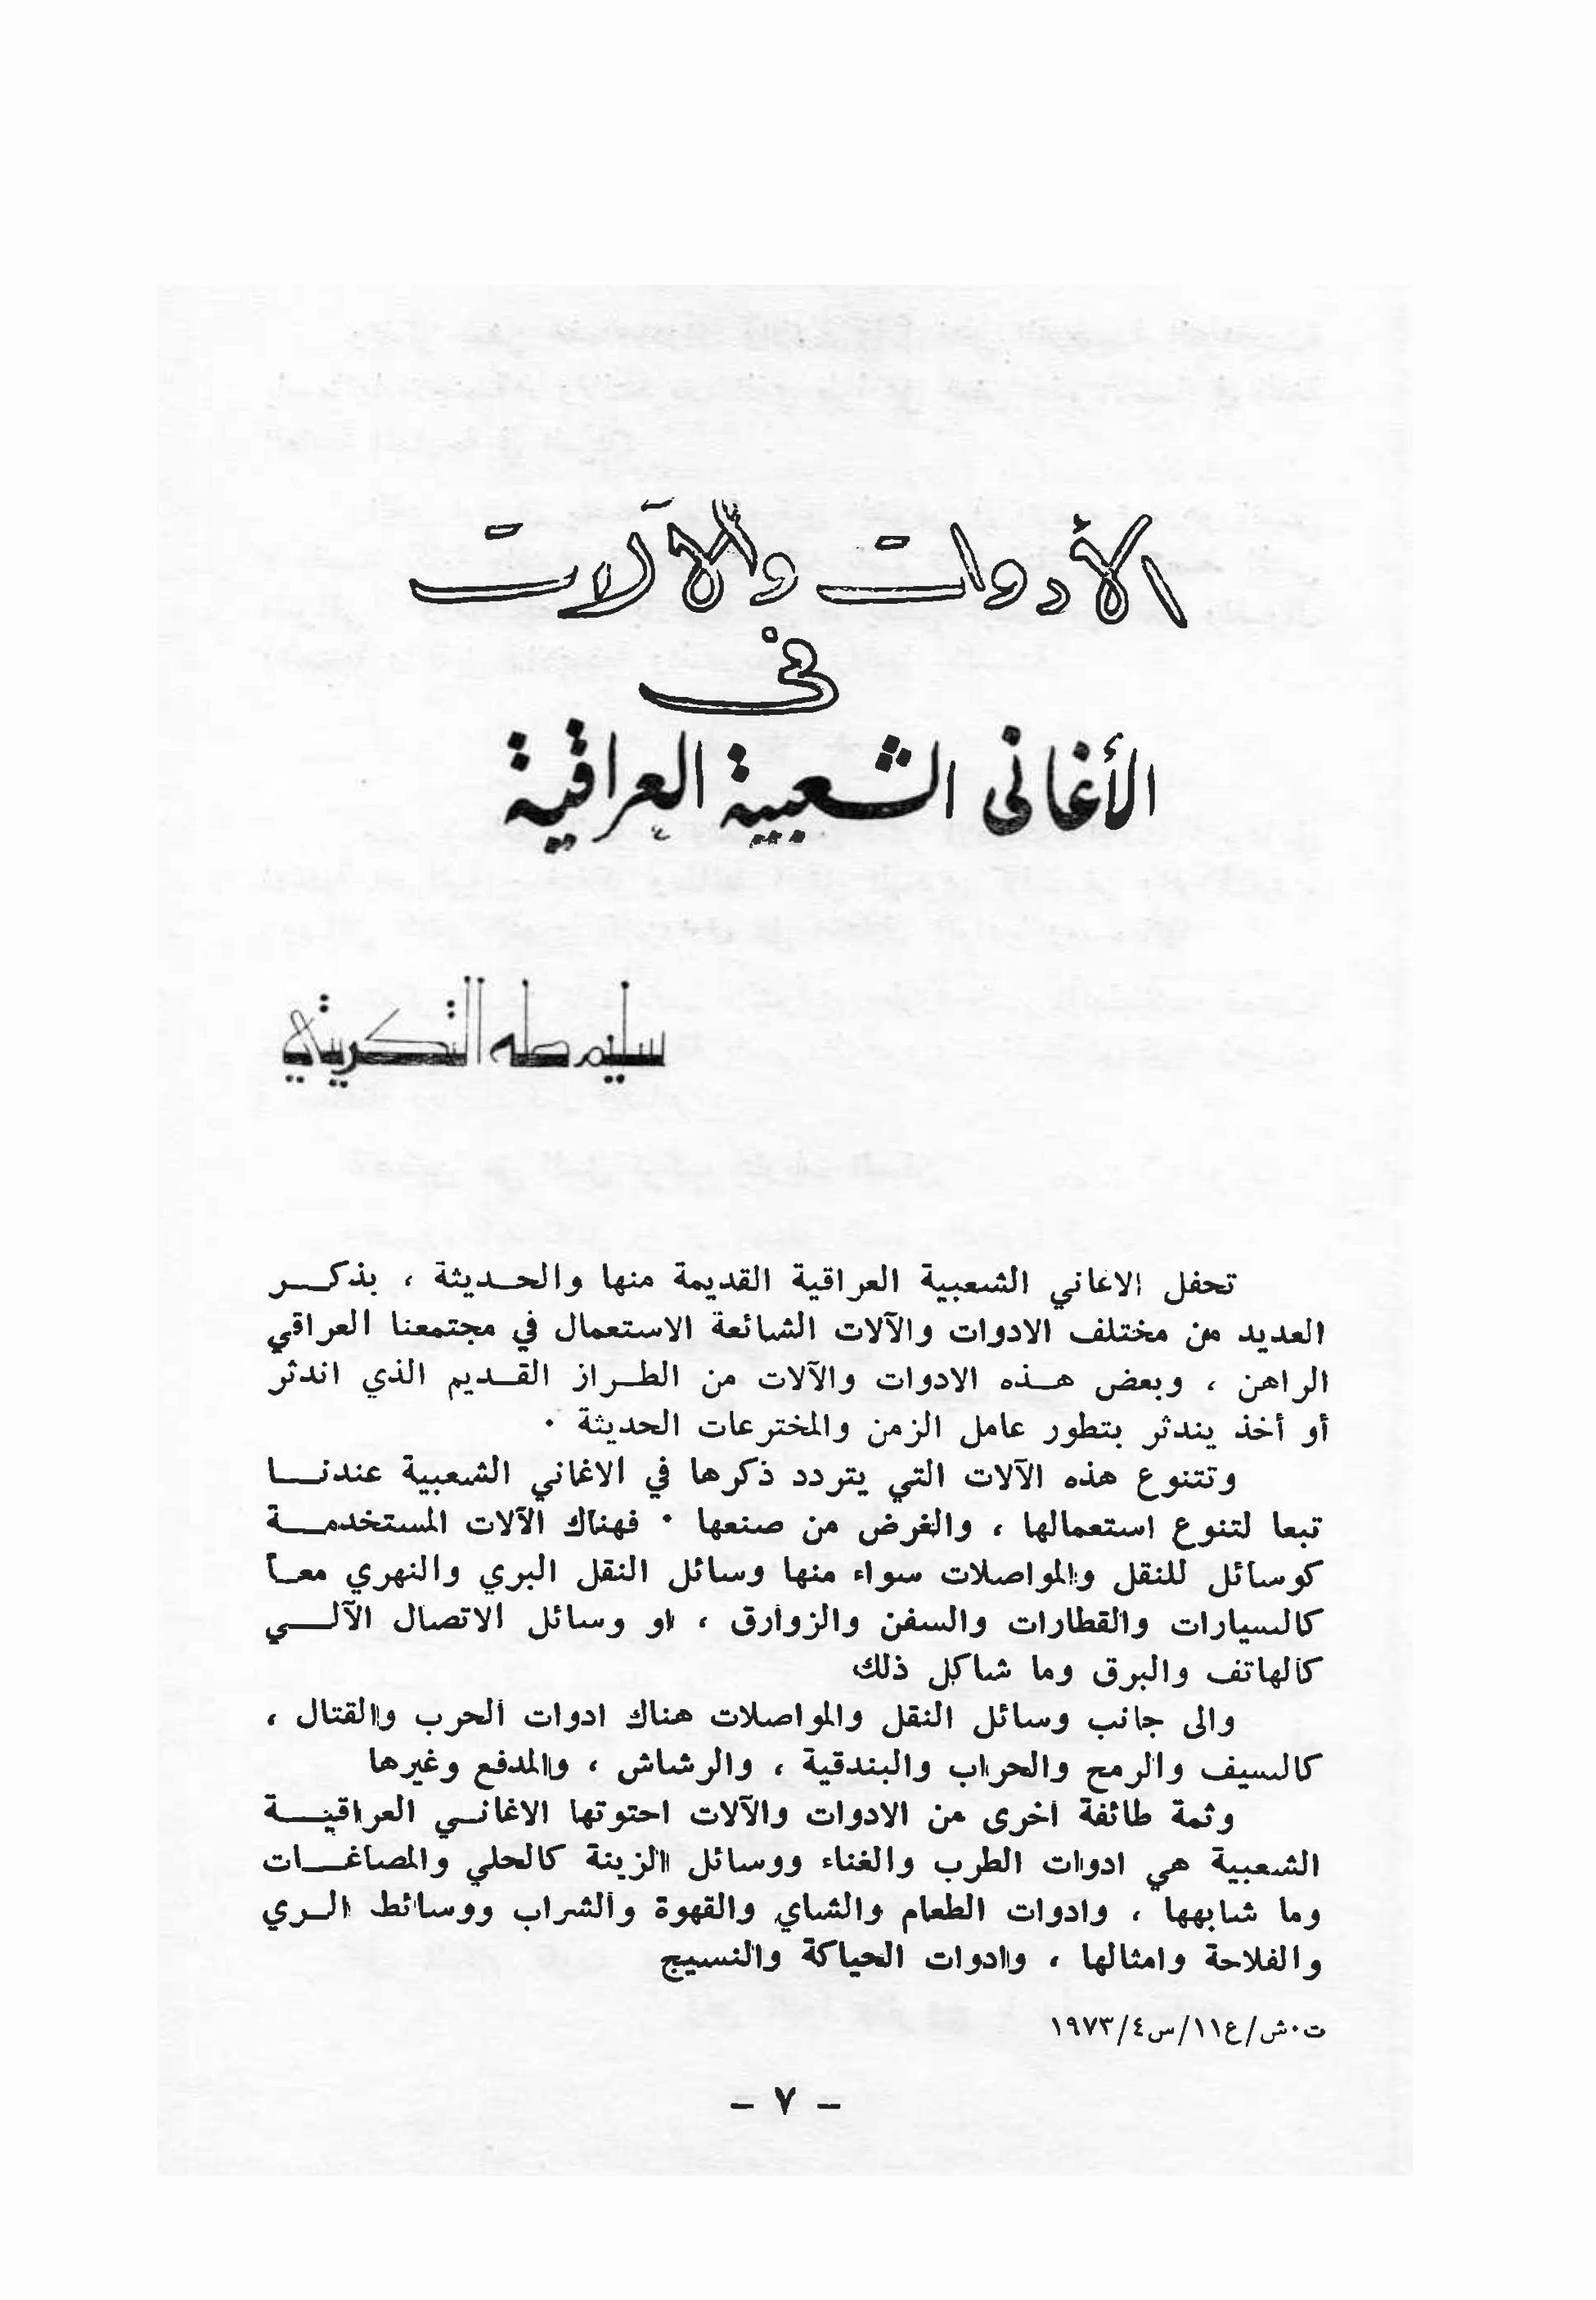 الأدوات والآلات
في
الأغاني الشعبية العراقية
سليم طه التكريتي
تحفل الاغاني الشعبية العراقية القديمة منها والحـديثة ، بذكـــر
العديد من مختلف الادوات والآلات الشائعة الاستعمال في مجتمعنا العراقي
الراهن ، وبعض هـذه الادوات والآلات من الطـراز القـديم الذي اندثر
أو أخذ يندثر بتطور عامل الزمن والمخترعات الحديثة ٠
وتتنوع هذه الآلات التي يتردد ذكرها في الاغاني الشعبية عندنــا
تبعا لتنوع استعمالها ، والغرض من صنعها ٠ فهناك الآلات المستخدمــة
كوسائل للنقل والمواصلات سواء منها وسائل النقل البري والنهري معـاً
كالسيارات والقطارات والسفن والزوارق ، او وسائل الاتصال الآلــي
كالهاتف والبرق وما شاكل ذلك
والى جانب وسائل النقل والمواصلات هناك ادوات الحرب والقتال ،
كالسيف والرمح والحراب والبندقية ، والرشاش ، والمدفع وغيرها
وثمة طائفة اخرى من الادوات والآلات احتوتها الاغانـي العراقيــة
الشعبية هي ادوات الطرب والغناء ووسائل الزينة كالحلي والمصاغــات
وما شابهها ، وادوات الطعام والشاي والقهوة والشراب ووسائط الـري
والفلاحة وامثالها ، وادوات الحياكة والنسيج
ت٠ش/ع١١/س٤/١٩٧٣
– ٧ –